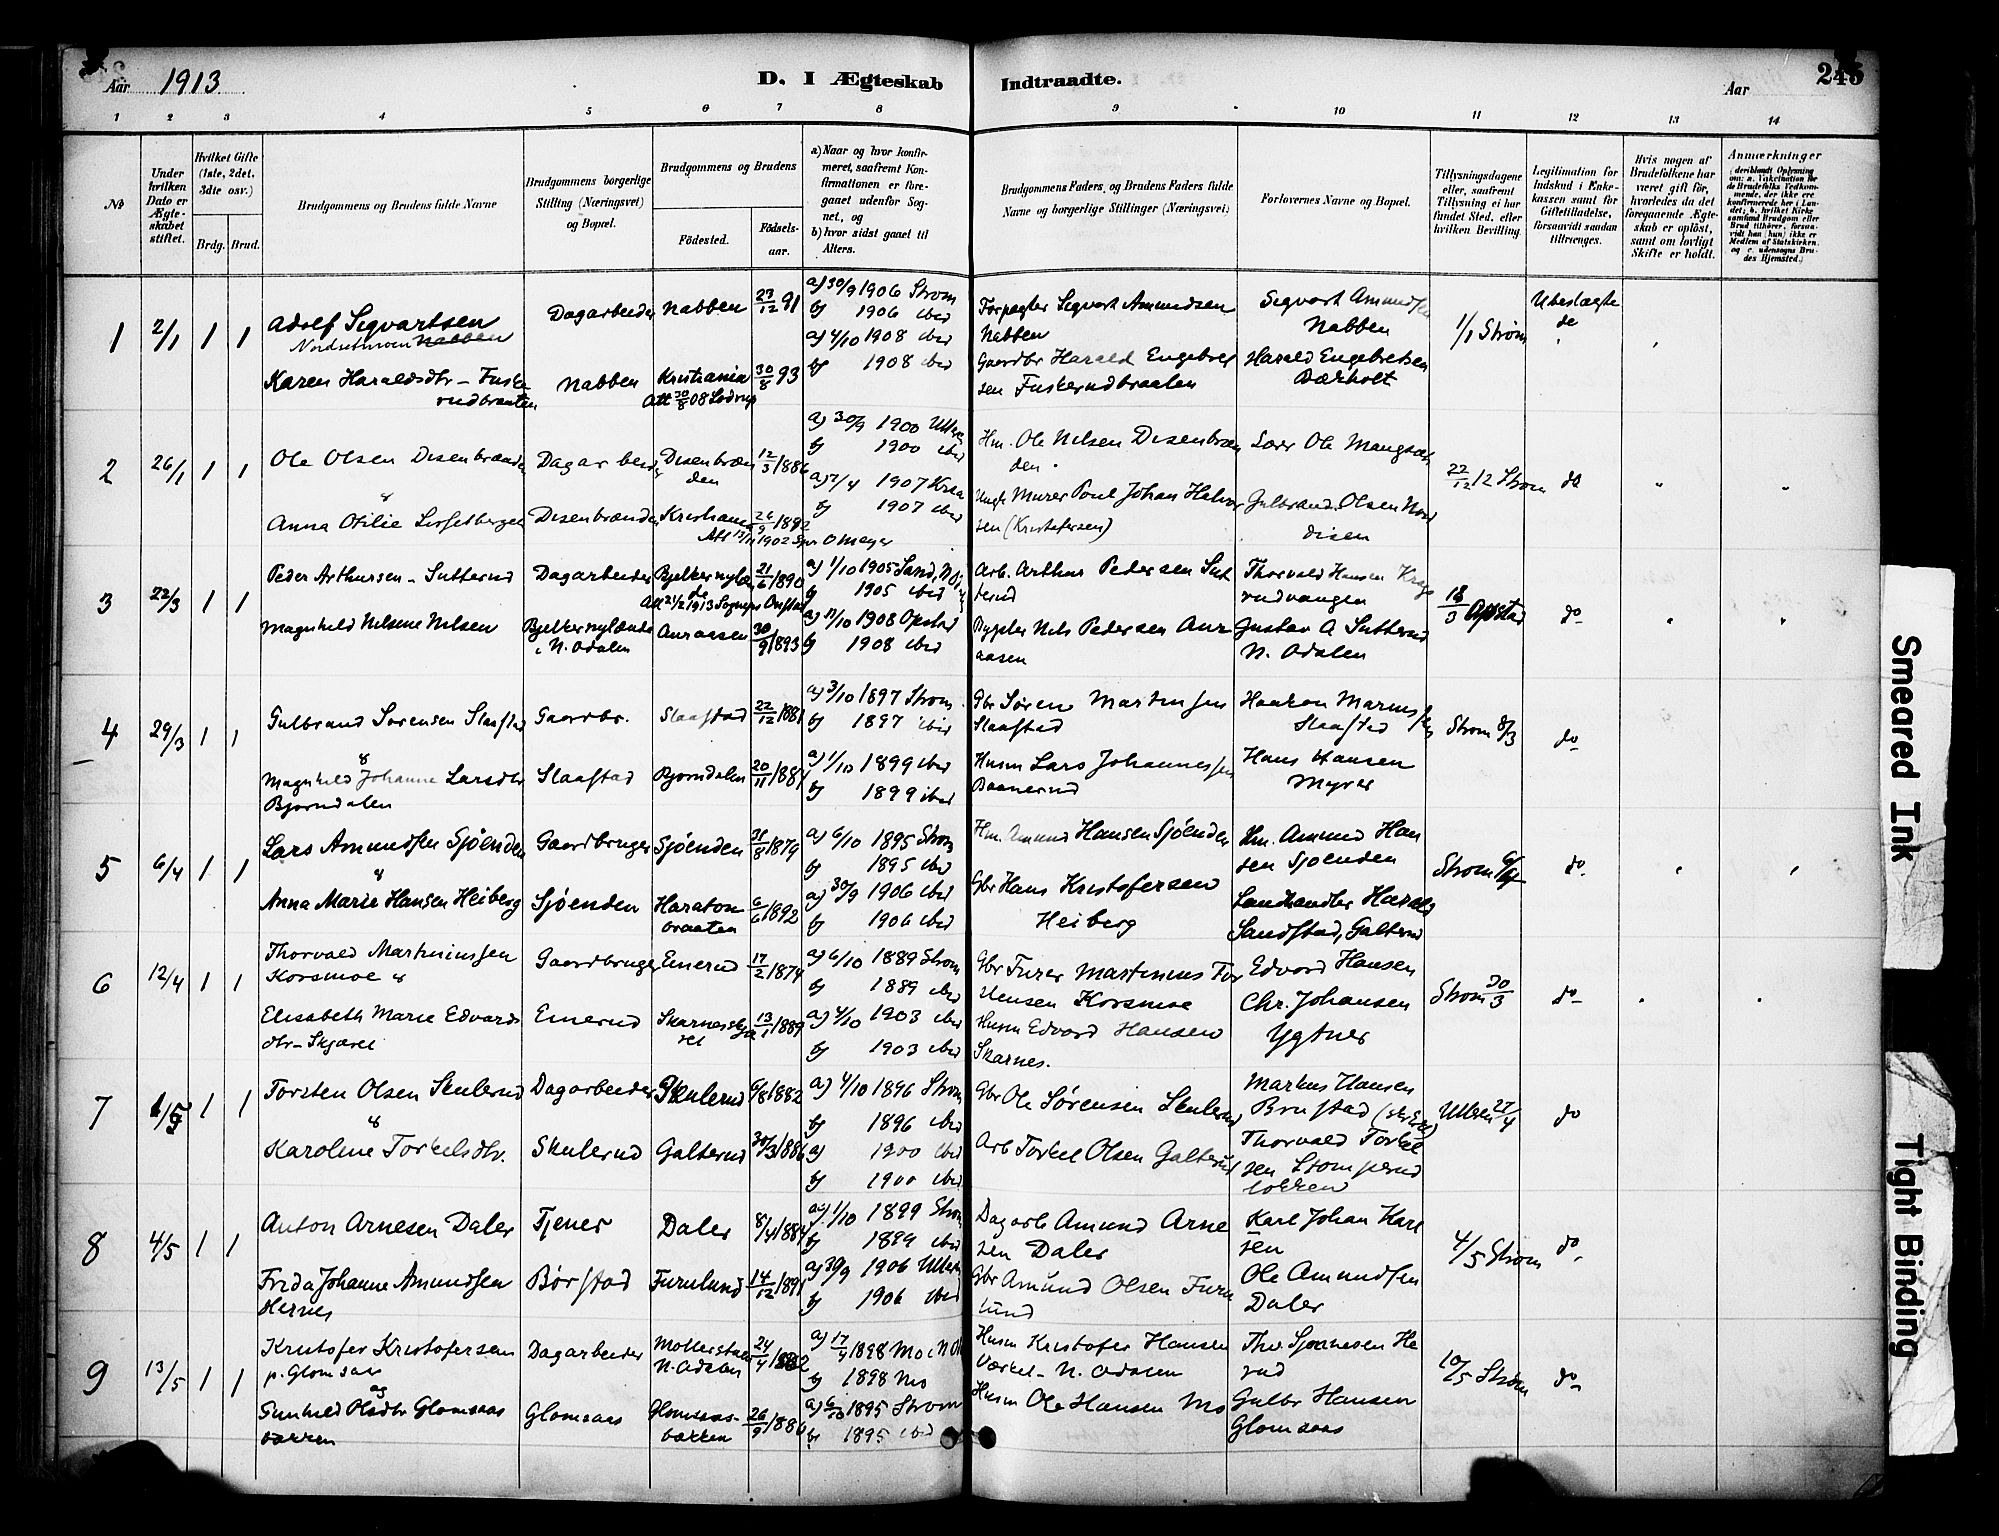 Aar 1913
D. I Ægteskab Indtraadte.
Aar
245
1 2 3 4 5 6 7 8 9 10 11 12 13 14
No
Under hvilken Dato er Ægteskabet stiftet.
Hvilket Gifte (1ste, 2det, 3die osv.)
Brdg. Brud.
Brudgommens og Brudens fulde Navne
Brudgommens borgerlige Stilling (Næringsvei) og Bopæl.
Brudgommens og Brudens
Fødested.
Fødselsaar.
a) Naar og hvor konfirmeret, saafremt Konfirmationen er foregaaet udenfor Sognet, og
b) hvor sidst gaaet til Alters.
Brudgommens Faders og Brudens Faders fulde Navne og borgerlige Stillinger (Næringsvei)
Forlovernes Navne og Bopæl.
Tillysningsdagene eller, saafremt Tillysning ei har fundet Sted, efter hvilken Bevilling.
Legitimation for Indskud i Enkekassen samt for Giftetilladelse, forsaavidt saadan tiltrænges.
Hvis nogen af Brudefolkene har været gift før, hvorledes da det foregaaende Ægteskab er opløst, samt om lovligt Skifte er holdt.
Anmærkninger
1 2/1 1 1
Adolf Sigvartsen
Nordstrøm Nabben
Dagarbeider Nabben 23/12 91
a) 30/9 1906 Strøm
b) 1906 ibid
Forpagter Sigvart Amundsen Nabben
Sigvart Amundsen Nabben
1/1 Strøm
Ubeslægtede
Karen Haraldsdtr – Fuskerudbraaten
Nabben Kristiania 30/8 93
Att 30/8 08
a) 4/10 1908 ibid
b) 1908 ibid
Gaardbr Harald Engebretsen Fuskerudbraaten
Harald Engebretsen
2 26/1 1 1
Ole Olsen Disenbrænden
Dagarbeider Disenbrænden 12/3 1886
a) 30/9 1900 Ullern
b) 1900 ibid
Hm. Ole Nilsen Disenbrænden
Lærer Ole Mangset
22/12 12 Strøm
do
&
Anna Otilie
Disenbrænden Kristiania 26/9 1892
a) 7/4 1907 Kra
b) 1907 ibid
Murer Poul Johan Halvorsen (Kristofersen)
Gulbrand Olsen Nord Disen
3 22/3 1 1
Peder Arthursen – Sutterud
Dagarbeider 21/6 1890
a) 1/10 1905 Sand, N. O
b) 1905 ibid
Arb. Arthur Pedersen Sutterud
Thorvald Hansen
18/3 Opstad
do
Magnhild Nilsine Nilsen
N. Odalen Auraasen 30/9 1893
a) 11/10 1908 Opstad
b) 1908 ibid
Nils Pedersen Auraasen
Gustav A Sutterud N. Odalen
4 29/3 1 1
Gulbrand Sørensen Slaastad
Gaardbr. Slaastad 22/12 1881
a) 3/10 1897 Strøm
b) 1897 ibid
Gbr Søren Martinsen Slaastad
Haakon Slaastad
Strøm 8/3
do
&
Magnhild Johanne Larsdtr Bjørndalen
Slaastad Bjørndalen 20/11 1884
a) 1/10 1899 ibid
b) 1899 ibid
Husm Lars Johannessen
Hans Hansen Myrer
5 6/4 1 1
Lars Amundsen Sjøenden
Gaardbruger Sjøenden 31/8 1879
a) 6/10 1895 Strøm
b) 1895 ibid
Hm. Amund Hansen Sjøenden
Hm. Amund Hansen Sjøenden
Strøm 6/4
do
&
Anna Marie Hansen Heiberg
Sjøenden Haratonbraaten 6/6 1892
a) 30/9 1906 ibid
b) 1906 ibid
Gbr Hans Kristofersen Heiberg
Landhandler Harald Sandstad, Galterud
6 12/4 1 1
Thorvald Martiniussen Korsmoe &
Gaardbruger Emerud 17/2 1874
a) 6/10 1889 Strøm
b) 1889 ibid
Edvard Hansen
Strøm 30/3
do
Elisabeth Marie Edvardsdtr – Skjæret
Emerud 13/1 1889
a) 4/10 1903 ibid
b) 1903 ibid
Husm Edvard Hansen Skarnes.
Chr. Johansen Ygtner
7 1/5 1 1
Torsten Olsen Skulerud
Dagarbeider Skulerud 6/8 1882
a) 4/10 1896 Strøm
b) 1896 ibid
Gbr Ole Sørensen Skulerud
Markus Hansen Brustad
Ullern 27/4
do
&
Karoline Torkelsdtr.
Skulerud Galterud 30/3 1886
a) 1900 ibid
b) 1900 ibid
Arb Torkel Olsen Galterud
Thorvald Torkelsen
8 4/5 1 1
Anton Arnesen Daler
Tjener Daler
a) 1/10 1899 Strøm
b) 1899 ibid
Dagarb Amund Arnesen Daler
Karl Johan Karlsen
4/5 Strøm
do
Frida Johanne Amundsen Hernes
Børstad Furulund 14/12 1891
a) 30/9 1906 Ullern
b) 1906 ibid
Gbr Amund Olsen Furulund
Ole Amundsen Daler
9 13/5 1 1
Kristofer Kristofersen p. Glomsaas
Dagarbeider N. Odalen 24/4 1882
1898 Mo i N. Od
b) 1898 Mo
Husm Kristofer Hansen N. Odalen
10/5 Strøm
do
og
Gunhild Olsdtr Glomsaasbakken
Glomsaas Glomsaasbakken 26/9 1880
a) 6/10 1895 Strøm
b) 1895 ibid
Husm Ole Hansen Mo
Gulbr Hansen Glomsaas
Smeared Ink
Tight Binding